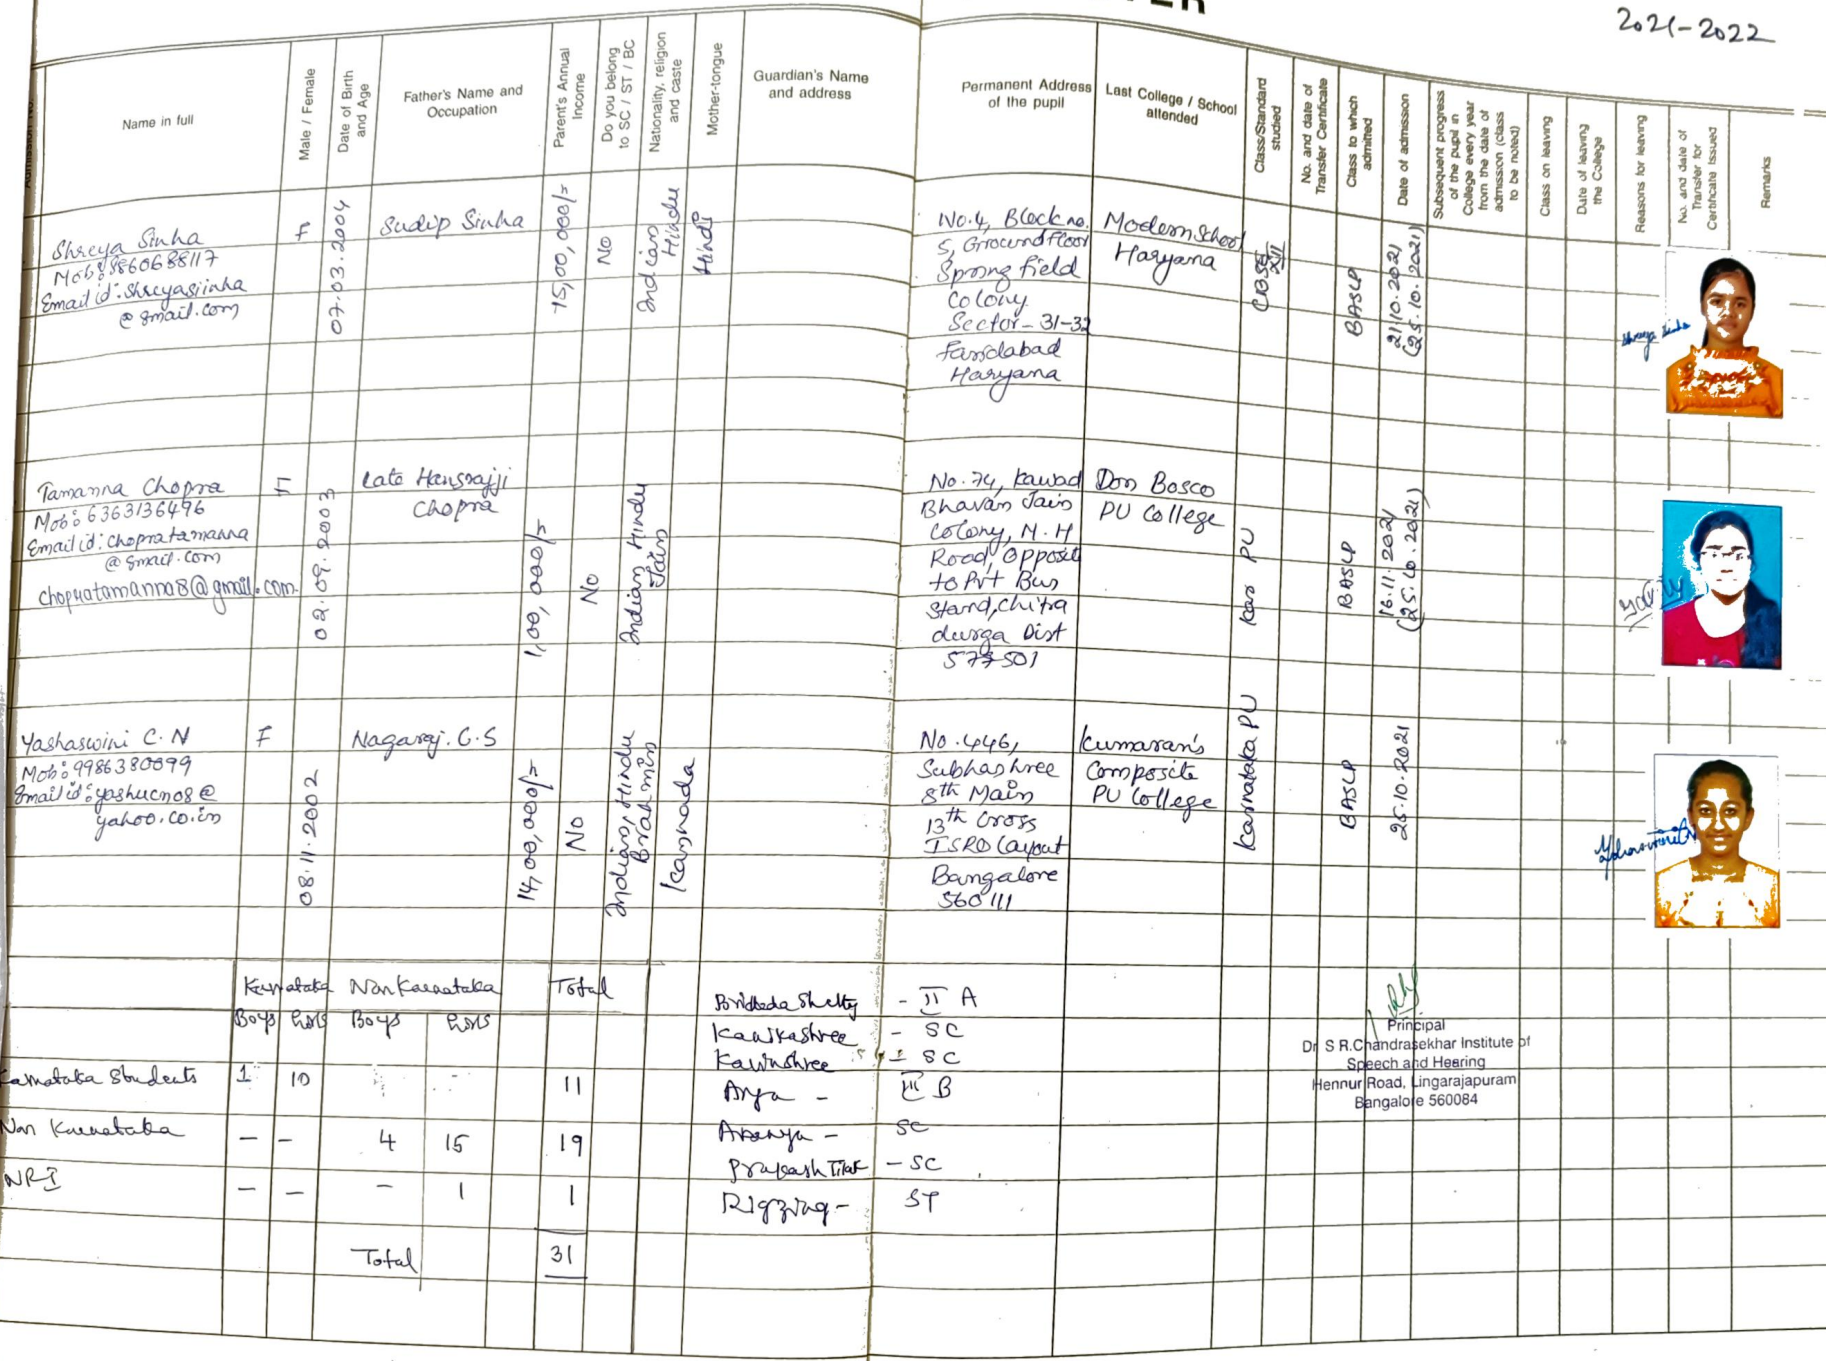 2021-2022
Name in full
Male / Female
Date of Birth
and Age
Father's Name and
Occupation
Parent's Annual
Income
Do you belong
to SC / ST / BC
Nationality, religion
and caste
Mother-tongue
Guardian's Name
and address
Permanent Address
of the pupil
Last College / School
attended
Class/Standard
studied
No. and date of
Transfer Certificate
Class to which
admitted
Date of admission
Subsequent progress
of the pupil in
College every year
from the date of
admission (class
to be noted)
Class on leaving
Date of leaving
the College
Reasons for leaving
No. and date of
Transfer for
Certificate Issued
Remarks
Shreya Sinha
Mob: 8860688117
Email id: Shreyasiinha
@gmail.com
F
07.03.2004
Sudip Sinha
15,00,000/=
No
Indian
Hindu
Hindi
No.4, Block no.
5, Ground floor
Spring field
Colony
Sector-31-32
Faridabad
Haryana
Modern School
Haryana
CBSE
XII
BASLP
21.10.2021
(25.10.2021)
Shreya Sinha
Tamanna Chopra
Mob: 6363136496
Email id: Chopratamanna
@gmail.com
chopratamanna8@gmail.com
F
02.09.2003
Late Hansrajji
Chopra
1,00,000/=
No
Indian Hindu
Jain
No.74, Kawad
Bhavan Jain
Colony, M.H
Road, Opposite
to Pvt Bus
Stand, Chitra
durga Dist
577501
Don Bosco
PU College
Kar PU
BASLP
16.11.2021
(25.10.2021)
Yashaswini C.N
Mob: 9986380099
Email id: yashucn08@
yahoo.co.in
F
08.11.2002
Nagaraj.C.S
14,00,000/=
No
Indian, Hindu
Brahmin
Kannada
No.446,
Subhashree
8th Main
13th Cross
ISRO Layout
Bangalore
560111
Kumaran's
Composite
PU College
Karnataka PU
BASLP
25.10.2021
Karnataka Non Karnataka Total
Boys Girls Boys Girls
Karnataka Students 1 10 11
Non Karnataka - - 4 15 19
NRI - - - 1 1
Total 31
Shetty - II A
Kavikashree - SC
Kavinshree - SC
Arya - III B
Ananya - SC
Prakash Tilak - SC
Rigzing - ST
Principal
Dr. S R.Chandrasekhar Institute of
Speech and Hearing
Hennur Road, Lingarajapuram
Bangalore 560084